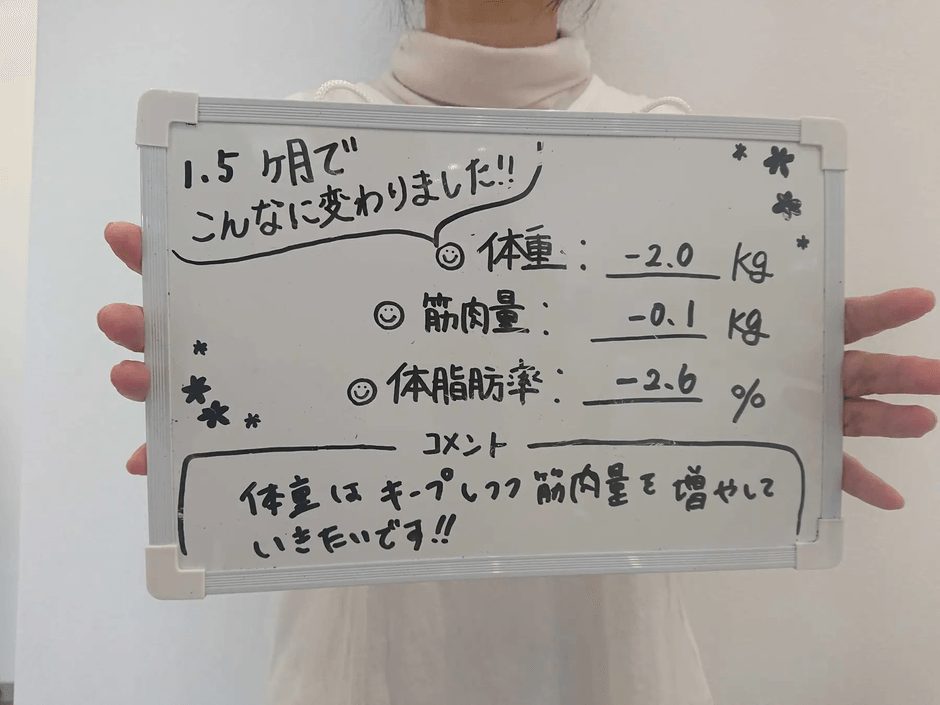 1.5 ヶ月で
こんなに変わりました!!
体重: -2.0 kg
筋肉量: -0.1 kg
体脂肪率: -2.6 %
コメント
体重は キープしつつ 筋肉量を 増やして
いきたいです!!